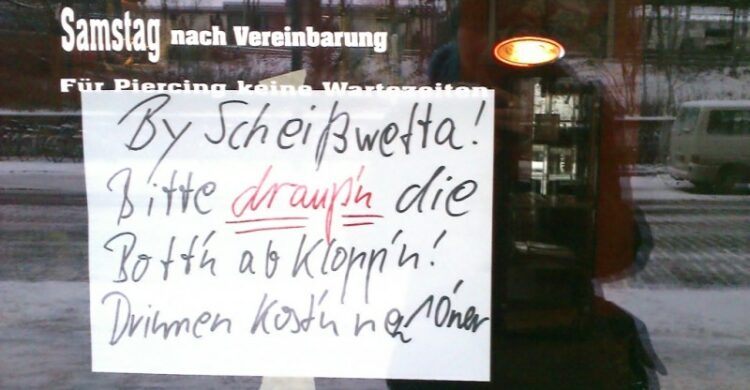 Samstag nach Vereinbarung
Für Piercing keine Wartezeiten
By Scheißwetta!
Bitte draup'n die
Bott'n abklopp'n!
Drinnen kost'n ne 10ner